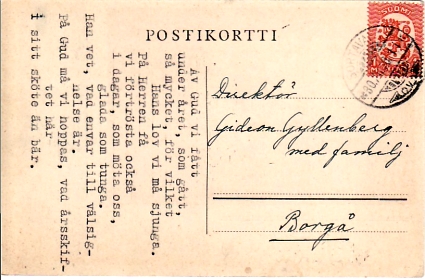 POSTIKORTTI
SUOMI
Av Gud vi fått
under året, som gått,
så mycket, för vilket
Hans lov vi må sjunga.
På Herren få
vi förtrösta också
i dagar, som möta oss,
glada som tunga.
Han vet, vad envar till välsig-
nelse är.
På Gud må vi hoppas, vad årsskif-
tet här
i sitt sköte än bär.
Direktör
Gideon Gyllenberg
med familj
Borgå